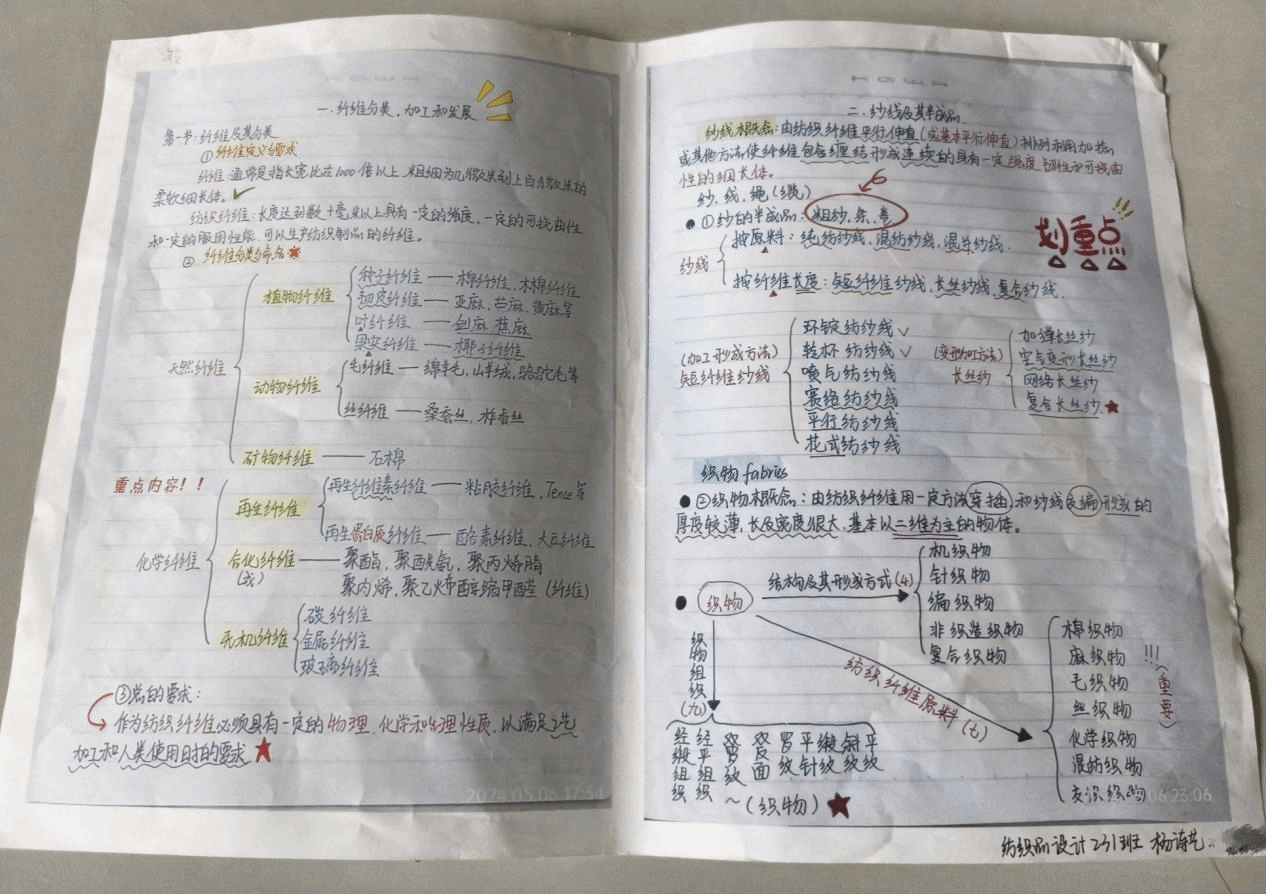 一.纤维分类,加工和发展
第一节:纤维及其分类
①纤维定义与要求
纤维:通常是指长宽比在1000倍以上,粗细为几微米到上百微米的
柔软细长体。
纺织纤维:长度达到数十毫米以上具有一定的强度,一定的可挠曲性
和一定的服用性能,可以生产纺织制品的纤维。
②纤维分类与命名
天然纤维
植物纤维
种子纤维——棉纤维,木棉纤维
韧皮纤维——亚麻,苎麻,黄麻等
叶纤维——剑麻,蕉麻
果实纤维——椰子纤维
动物纤维
毛纤维——绵羊毛,山羊绒,骆驼毛等
丝纤维——桑蚕丝,柞蚕丝
矿物纤维——石棉
重点内容!!
化学纤维
再生纤维
再生纤维素纤维——粘胶纤维,Tencel等
再生蛋白质纤维——酪素纤维,大豆纤维
合化纤维——聚酯,聚酰氨,聚丙烯腈
(成)
聚丙烯,聚乙烯醇缩甲醛(纤维)
无机纤维
碳纤维
金属纤维
玻璃纤维
③总的要求:
作为纺织纤维必须具有一定的物理,化学和生理性质,以满足工艺
加工和人类使用时的要求
2024.05.06 17:34
二.纱线及其半成品
纱线概念:由纺织纤维平行伸直(或基本平行伸直)排列利用加捻
或其他方法使纤维包含缠结形成连续的具有一定强度,韧性和可挠曲
性的细长体。
纱、线、绳(缆)
①纱的半成品:粗纱、条、卷
划重点
纱线
按原料:纯纺纱线,混纺纱线,混杂纱线.
按纤维长度:短纤维纱线,长丝纱线,复合纱线.
(加工形成方法)
短纤维纱线
环锭纺纱线
转杯纺纱线
喷气纺纱线
赛络纺纱线
平行纺纱线
花式纺纱线
(变形加工方法)
长丝纱
加弹长丝纱
空气变形长丝纱
网络长丝纱
复合长丝纱.
织物fabrics
②织物概念:由纺织纤维用一定方法穿插,和纱线交编形成的
厚度较薄,长及宽度很大,基本以二维为主的物体。
织物
结构及其形成方式(4)
机织物
针织物
编织物
非织造织物
复合织物
纺织纤维原料(七)
棉织物
麻织物
毛织物
丝织物
化学织物
混纺织物
交织织物
!!!(重要)
织物组织(九)
经缎组织
经平组织
双罗纹
双反面
罗纹
平针
缎纹
斜纹
平纹
~(织物)
06 23:06
纺织品设计231班 杨诗艺